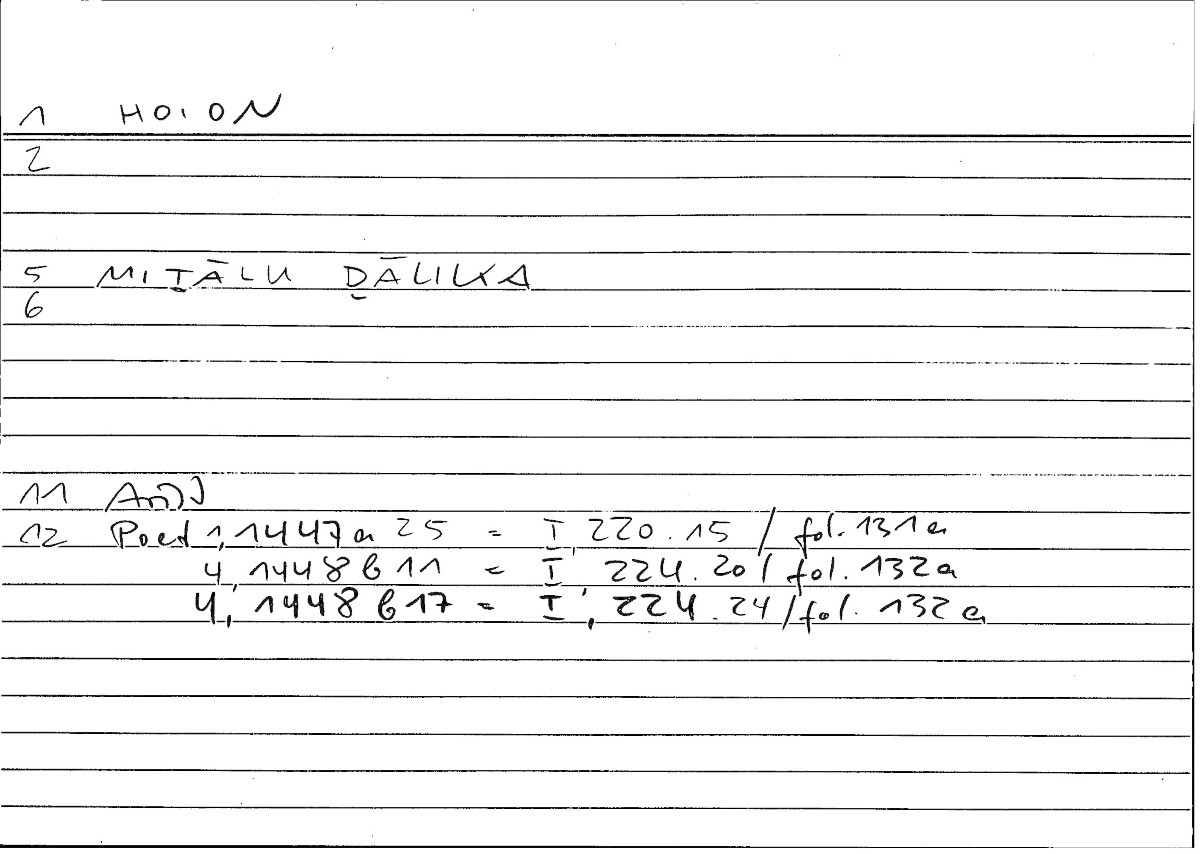 1 HOION
2
5 MIṮĀLU ḎĀLIKA
6
11
12 Poet 1,1447a 25 = I, 220.15 / fol. 131a
4, 1448 b 11 = I, 224.20 / fol. 132a
4, 1448 b 17 = I, 224.24 / fol. 132a